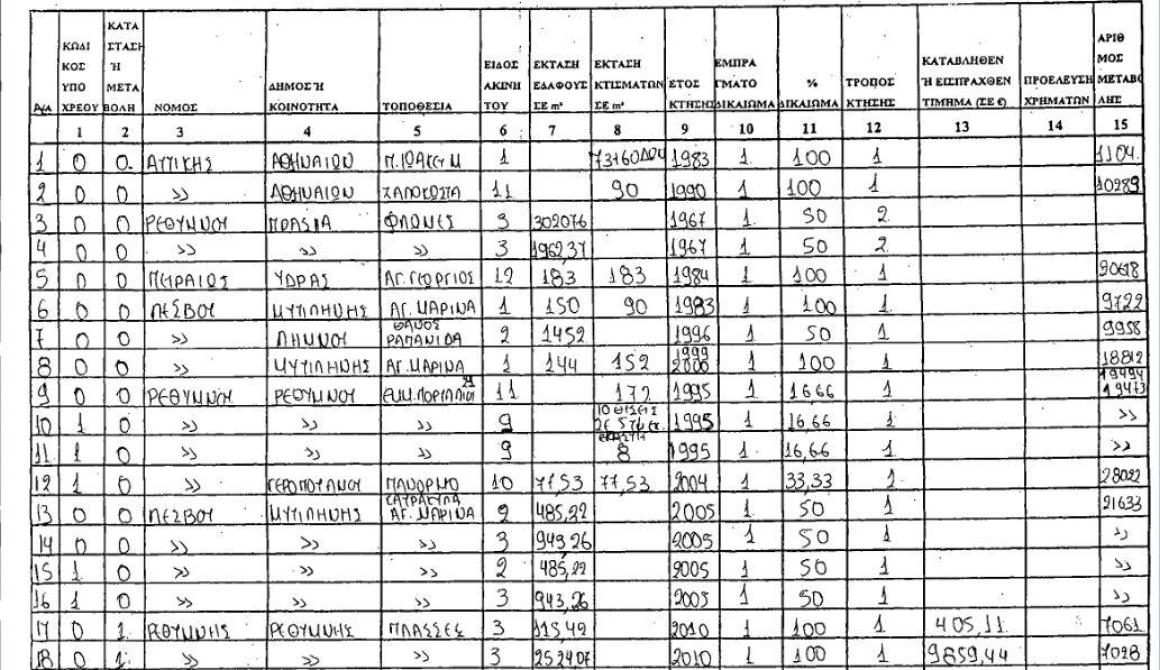 Α/Α ΚΩΔΙ ΚΟΣ ΥΠΟ ΧΡΕΟΥ ΚΑΤΑ ΣΤΑΣΗ Ή ΜΕΤΑ ΒΟΛΗ ΝΟΜΟΣ ΔΗΜΟΣ Ή ΚΟΙΝΟΤΗΤΑ ΤΟΠΟΘΕΣΙΑ ΕΙΔΟΣ ΑΚΙΝΗ ΤΟΥ ΕΚΤΑΣΗ ΕΔΑΦΟΥΣ ΣΕ m² ΕΚΤΑΣΗ ΚΤΙΣΜΑΤΩΝ ΣΕ m² ΕΤΟΣ ΚΤΗΣΗΣ ΕΜΠΡΑ ΓΜΑΤΟ ΔΙΚΑΙΩΜΑ % ΔΙΚΑΙΩΜΑ ΤΡΟΠΟΣ ΚΤΗΣΗΣ ΚΑΤΑΒΛΗΘΕΝ Ή ΕΙΣΠΡΑΧΘΕΝ ΤΙΜΗΜΑ (ΣΕ €) ΠΡΟΕΛΕΥΣΗ ΧΡΗΜΑΤΩΝ ΑΡΙΘ ΜΟΣ ΜΕΤΑΒΟ ΛΗΣ
1 2 3 4 5 6 7 8 9 10 11 12 13 14 15
1 0 0 ΑΤΤΙΚΗΣ ΑΘΗΝΑΙΩΝ Π.ΙΩΑΚΕΙΜ 1 1983 1 100 1 1104
2 0 0 >> ΑΘΗΝΑΙΩΝ ΧΑΛΟΚΩΣΤΑ 11 90 1990 1 100 1 10289
3 0 0 ΡΕΘΥΜΝΟΥ ΠΡΑΣΙΑ ΦΛΩΜΕΣ 3 302076 1967 1 50 2
4 0 0 >> >> >> 3 1962,37 1967 1 50 2
5 0 0 ΠΕΙΡΑΙΩΣ ΥΔΡΑΣ ΑΓ.ΓΕΩΡΓΙΟΣ 12 183 183 1984 1 100 1 90618
6 0 0 ΛΕΣΒΟΥ ΜΥΤΙΛΗΝΗΣ ΑΓ.ΜΑΡΙΝΑ 1 150 90 1983 1 100 1 9722
7 0 0 >> ΛΗΜΝΟΥ ΘΑΝΟΣ ΡΑΠΑΝΙΔΑ 2 1452 1996 1 50 1 9958
8 0 0 >> ΜΥΤΙΛΗΝΗΣ ΑΓ.ΜΑΡΙΝΑ 1 144 152 1999 2000 1 100 1 18812
9 0 0 ΡΕΘΥΜΝΟΥ ΡΕΘΥΜΝΟΥ 11 172 1995 1 16,66 1 19494 19473
10 1 0 >> >> >> 9 10 ΘΕΣΕΙΣ 1995 1 16,66 1 >>
11 1 0 >> >> >> 9 8 1995 1 16,66 1 >>
12 1 0 >> ΓΕΡΟΠΟΤΑΜΟΥ ΠΑΝΟΡΜΟ 10 77,53 77,53 2004 1 33,33 1 28022
13 0 0 ΛΕΣΒΟΥ ΜΥΤΙΛΗΝΗΣ ΑΓ.ΜΑΡΙΝΑ 2 485,22 2005 1 50 1 21633
14 0 0 >> >> >> 3 943,26 2005 1 50 1 >>
15 1 0 >> >> >> 2 485,22 2005 1 50 1 >>
16 1 0 >> >> >> 3 943,26 2005 1 50 1 >>
17 0 1 ΡΕΘΥΜΝΗΣ ΡΕΘΥΜΝΗΣ ΠΛΑΣΣΕΣ 3 115,42 2010 1 100 1 405,11 7061
18 0 1 >> >> >> 3 2524,07 2010 1 100 1 9859,44 7028